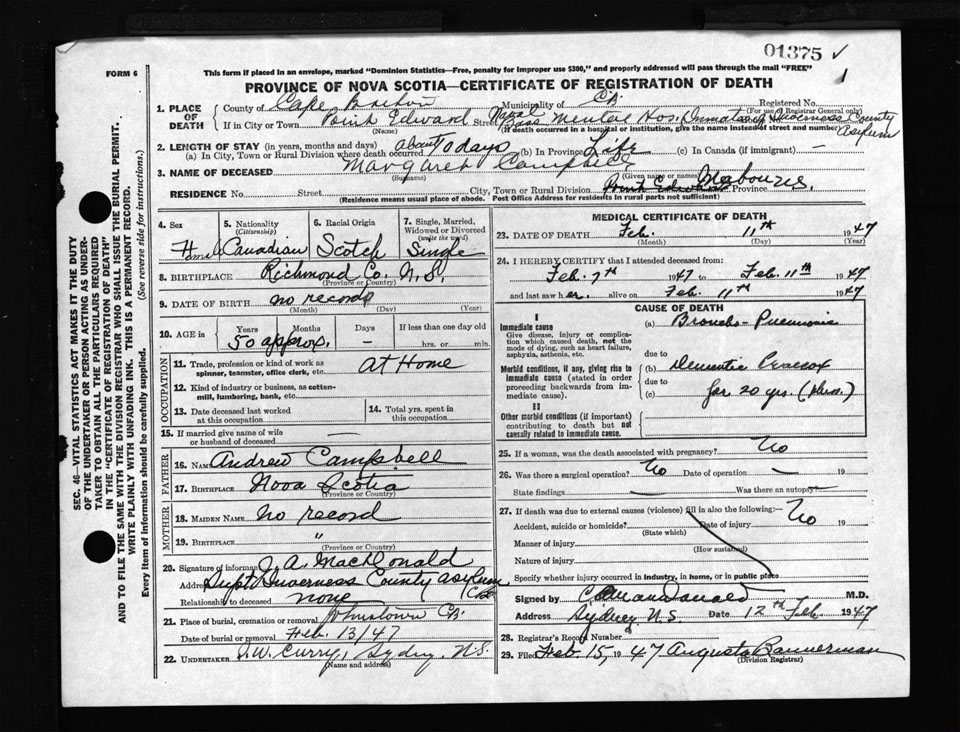 01375 ✓
1
FORM 6
This form if placed in an envelope, marked "Dominion Statistics—Free, penalty for improper use $300," and properly addressed will pass through the mail "FREE"
PROVINCE OF NOVA SCOTIA—CERTIFICATE OF REGISTRATION OF DEATH
1. PLACE OF DEATH
County of Cape Breton Municipality of C.B. Registered No.
(For use of Registrar General only)
If in City or Town Point Edward Street Naval Base Hos. Inmate of Inverness County Asylum
(Name) (If death occurred in a hospital or institution, give the name instead of street and number)
2. LENGTH OF STAY (in years, months and days) about 10 days
(a) In City, Town or Rural Division where death occurred (b) In Province Life (c) In Canada (if immigrant) —
3. NAME OF DECEASED Margaret Campbell
(Surname) (Given name or names)
RESIDENCE No. Street City, Town or Rural Division Point Edward Mabou Province N.S.
(Residence means usual place of abode. Post Office Address for residents in rural parts not sufficient)
SEC. 46—VITAL STATISTICS ACT MAKES IT THE DUTY
OF THE UNDERTAKER OR PERSON ACTING AS UNDER-
TAKER TO OBTAIN ALL THE PARTICULARS REQUIRED
IN THE "CERTIFICATE OF REGISTRATION OF DEATH"
AND TO FILE THE SAME WITH THE DIVISION REGISTRAR WHO SHALL ISSUE THE BURIAL PERMIT.
WRITE PLAINLY WITH UNFADING INK. THIS IS A PERMANENT RECORD.
Every item of information should be carefully supplied. (See reverse side for instructions.)
4. Sex 5. Nationality (Citizenship) 6. Racial Origin 7. Single, Married, Widowed or Divorced (write the word)
Female Canadian Scotch Single
8. BIRTHPLACE Richmond Co. N.S.
(Province or Country)
9. DATE OF BIRTH no record
(Month) (Day) (Year)
10. AGE in Years Months Days If less than one day old
50 approx. — hrs. or min.
OCCUPATION
11. Trade, profession or kind of work as spinner, teamster, office clerk, etc. At Home
12. Kind of industry or business, as cotton-mill, lumbering, bank, etc.
13. Date deceased last worked at this occupation
14. Total yrs. spent in this occupation
15. If married give name of wife or husband of deceased —
FATHER
16. NAME Andrew Campbell
17. BIRTHPLACE Nova Scotia
(Province or Country)
MOTHER
18. MAIDEN NAME No record
19. BIRTHPLACE "
(Province or Country)
20. Signature of informant J. A. MacDonald
Address Supt Inverness County Asylum
Relationship to deceased none
21. Place of burial, cremation or removal Johnstown CB
Date of burial or removal Feb. 13/47
22. UNDERTAKER J.W. Curry, Sydney, N.S.
(Name and address)
MEDICAL CERTIFICATE OF DEATH
23. DATE OF DEATH Feb. 11th 1947
(Month) (Day) (Year)
24. I HEREBY CERTIFY that I attended deceased from:
Feb. 7th 1947 to Feb. 11th 1947
and last saw her alive on Feb. 11th 1947
CAUSE OF DEATH
I
Immediate cause
Give disease, injury or complication which caused death, not the mode of dying, such as heart failure, asphyxia, asthenia, etc.
(a) Broncho-Pneumonia
due to
Morbid conditions, if any, giving rise to immediate cause (stated in order proceeding backwards from immediate cause).
(b) Dementia Praecox
due to
(c) for 20 yrs.
II
Other morbid conditions (if important) contributing to death but not causally related to immediate cause.
25. If a woman, was the death associated with pregnancy? No
26. Was there a surgical operation? No Date of operation — 19
State findings — Was there an autopsy? —
27. If death was due to external causes (violence) fill in also the following:— No
Accident, suicide or homicide? Date of injury 19
(State which)
Manner of injury
(How sustained)
Nature of injury
Specify whether injury occurred in industry, in home, or in public place
Signed by MacDonald M.D.
Address Sydney N.S. Date 12th Feb. 1947
28. Registrar's Record Number
29. Filed Feb. 15, 1947 Augusta Bannerman
(Division Registrar)